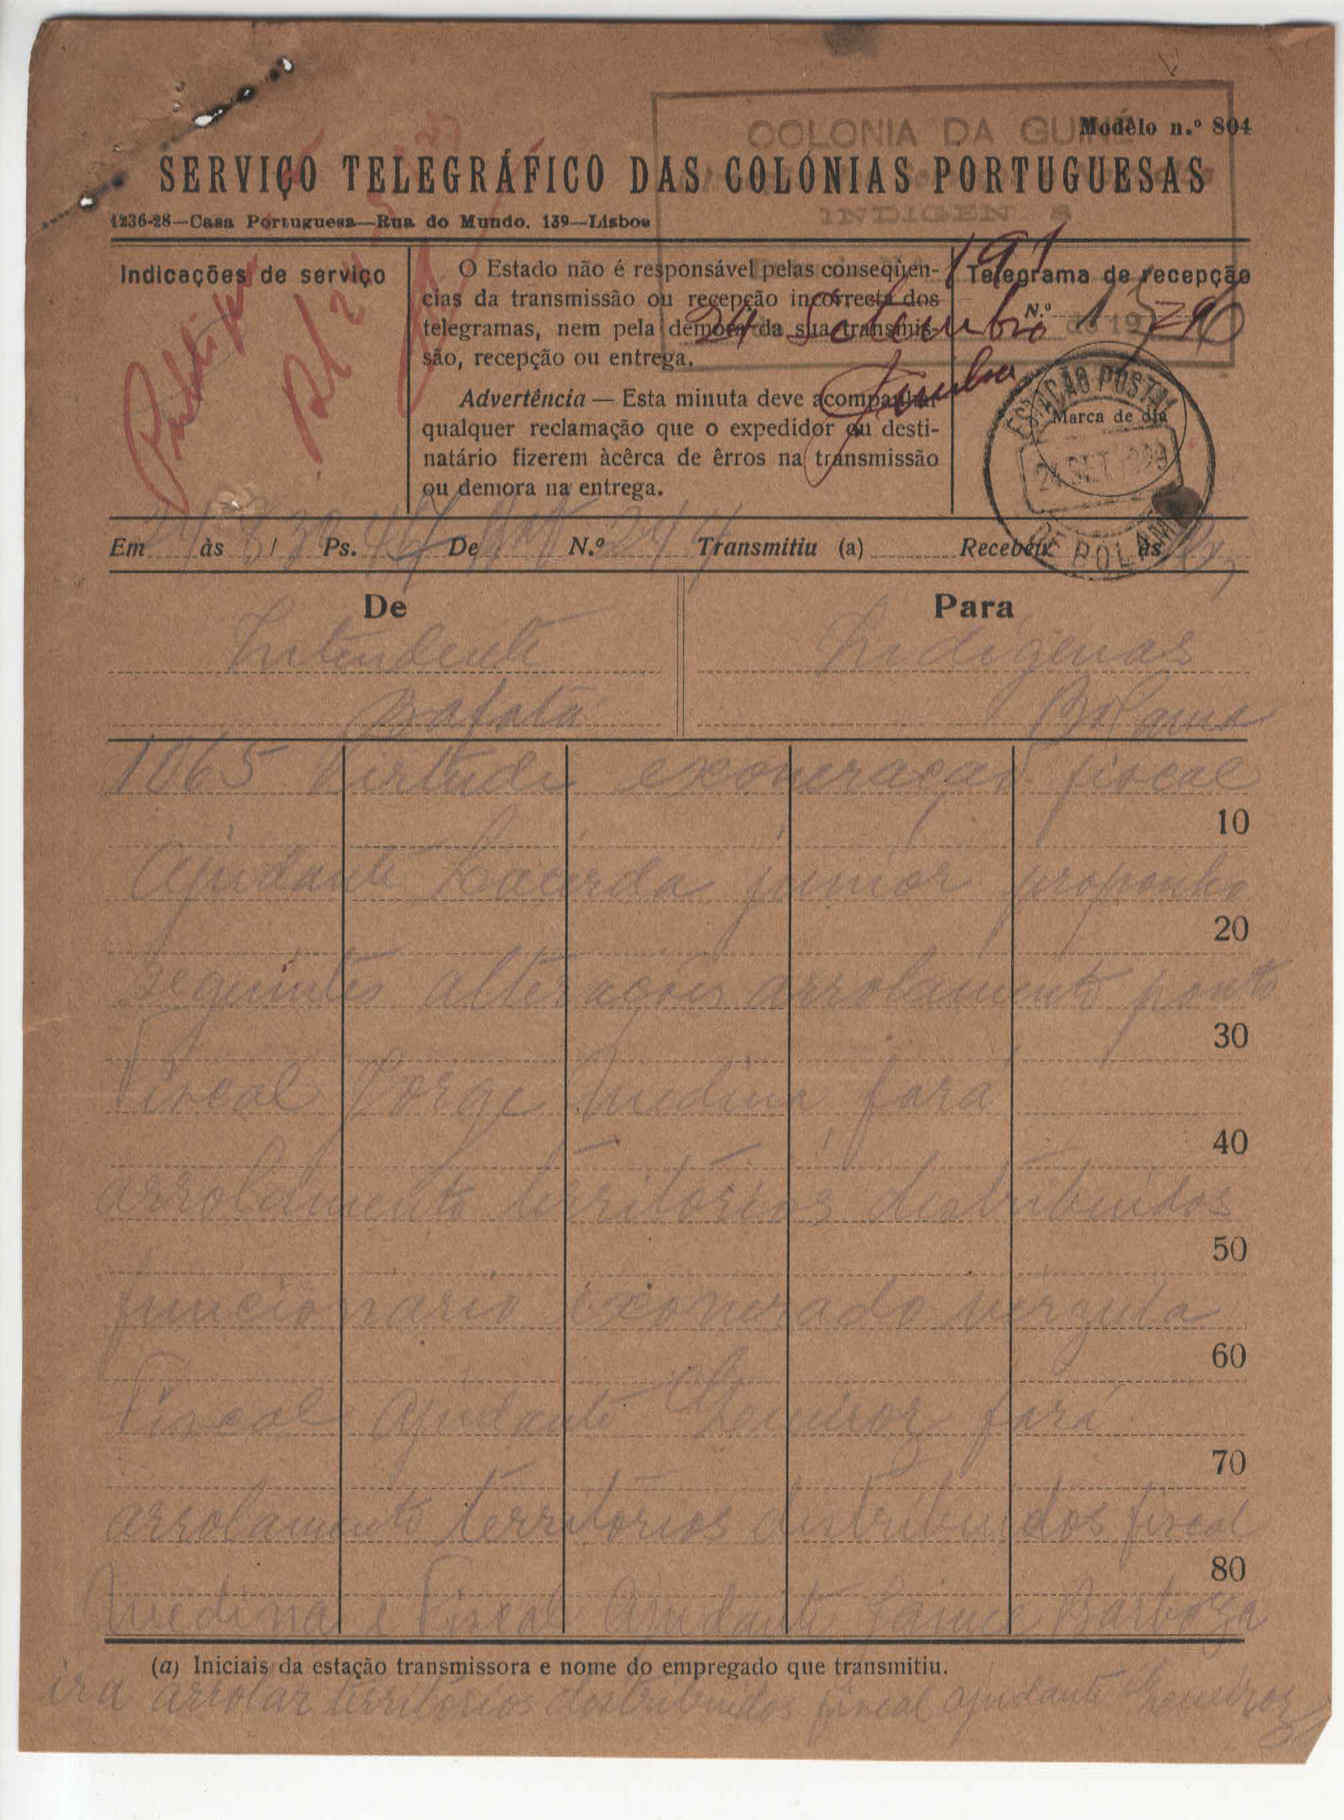 COLONIA DA GUINÉ
Modêlo n.º 804
SERVIÇO TELEGRÁFICO DAS COLÓNIAS PORTUGUESAS
INDIGEN S
1236-28—Casa Portuguesa—Rua do Mundo, 139—Lisboa
Indicações de serviço
O Estado não é responsável pelas conseqüen-
cias da transmissão ou recepção incorrecta dos
telegramas, nem pela demora da sua transmis-
são, recepção ou entrega.
Advertência — Esta minuta deve acompanhar
qualquer reclamação que o expedidor ou desti-
natário fizerem àcêrca de êrros na transmissão
ou demora na entrega.
Telegrama de recepção
N.º
191
24 Setembro de 19
ESTAÇÃO POSTAL
Marca de dia
24 SET
DE BOLAMA
Em 24 às Ps. De N.º 244 Transmitiu (a) Recebeu às
De
Para
Intendente
Indigenas
Bafatá
Bolama
1065 Virtude exoneração fiscal
10
Ajudante Lacerda junior proponho
20
seguintes alterações arrolamento ponto
30
Fiscal Jorge Medina fará
40
arrolamento territórios distribuidos
50
funcionario exonerado virgula
60
Fiscal Ajudante fará
70
arrolamento territórios distribuidos fiscal
80
Medina e Fiscal Ajudante Jaime Barboza
(a) Iniciais da estação transmissora e nome do empregado que transmitiu.
irá arrolar territórios distribuidos fiscal ajudante